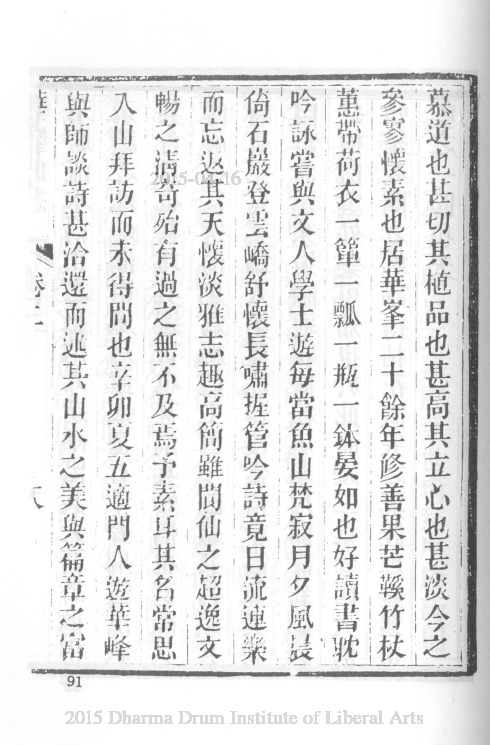 慕道也甚切其植品也甚高其立心也甚淡今之
參寥懷素也居華峯二十餘年修善果芒鞵竹杖
蕙帶荷衣一簞一瓢一瓶一鉢晏如也好讀書耽
吟詠嘗與文人學士遊每當魚山梵寂月夕風晨
倚石巖登雲嶠舒懷長嘯握管吟詩竟日流連樂
而忘返其天懷淡雅志趣高簡雖閬仙之超逸文
暢之清奇殆有過之無不及焉予素耳其名常思
入山拜訪而未得間也辛卯夏五適門人遊華峰
與師談詩甚洽還而述其山水之美與篇章之富
卷二
八
91
2015-04-16
2015 Dharma Drum Institute of Liberal Arts